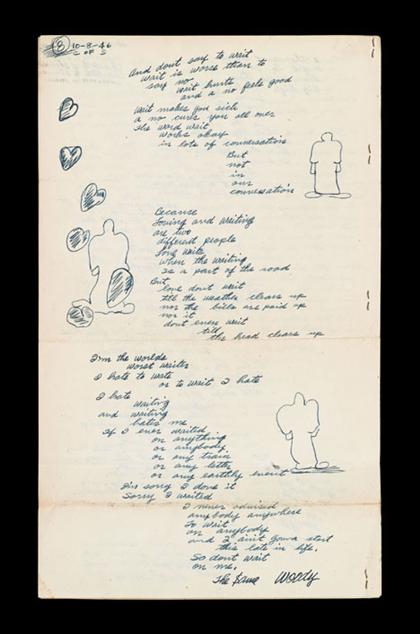 8 10-8-46
5 OF 5
And dont say to wait
wait is worse than to
say no
wait hurts
and a no feels good
Wait makes you sick
a no cures you all over
The word wait
works okay
in lots of conversations
But
not
in
our
conversations
Because
Loving and waiting
are two
different people
Love waits
when the waiting
is a part of the road
But
love dont wait
till the weather clears up
nor the bills are paid up
nor it
dont even wait
till
the head clears up
I'm the worlds
worst waiter
I hate to wate
or to wait I hate
I hate
waiting
and waiting
hates me
If I ever waited
on anything
or anybody
or any train
or any letter
or any earthly event
I'm sorry I done it
Sorry I waited
I never advised
anybody anywhere
To wait
on anybody
and I ain't gonna start
this late in life.
So dont wait
on me.
The Same Woody